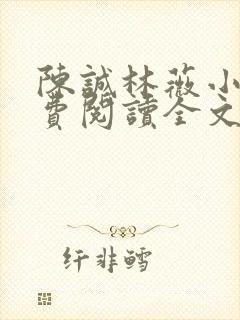 陳誠林薇小
費閱讀全文
纤非鳕